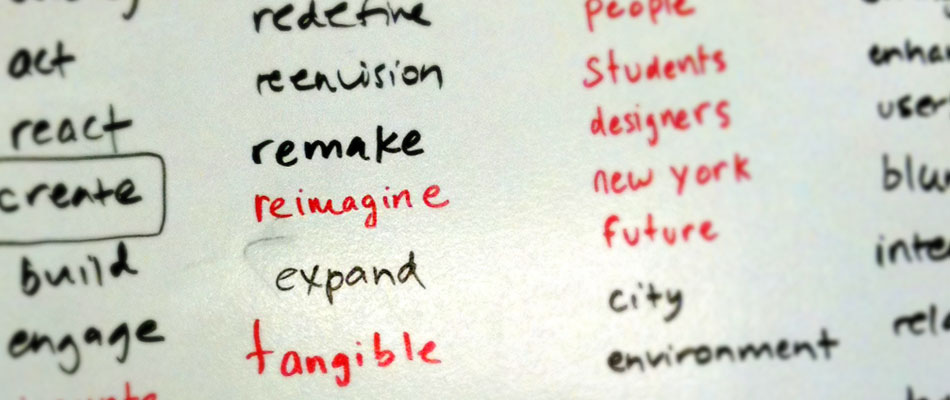 act
react
create
build
engage
redefine
reenvision
remake
reimagine
expand
tangible
people
students
designers
new york
future
city
environment
user